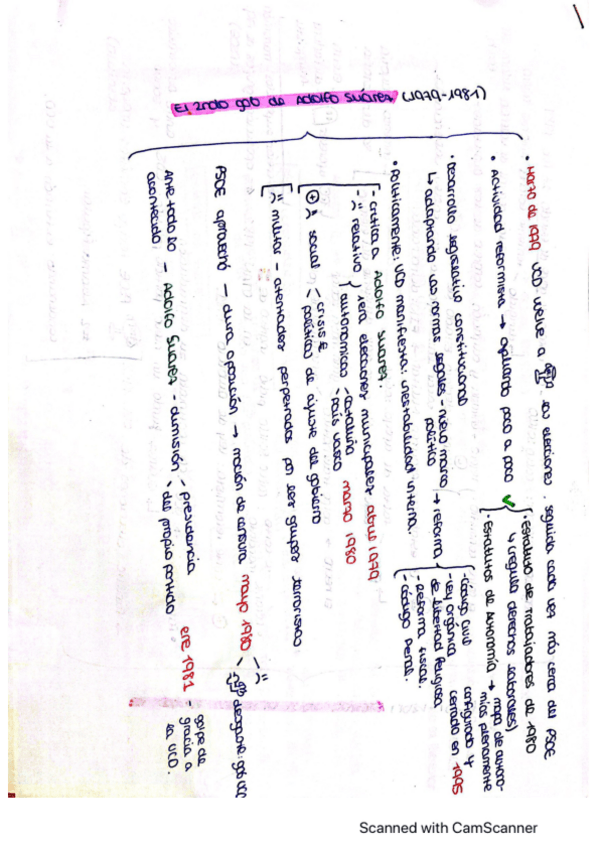 El 2ndo gob de Adolfo Suárez (1979-1981)
• Marzo de 1979 UCD vuelve a - sus elecciones. seguida cada vez más cerca del PSOE
• Actividad reformista → aplicando poco a poco
· Estatuto de Trabajadores de 1980
↳ (regula derechos laborales)
· Estatutos de Autonomía → mapa de autono-
mías plenamente
configurado y
cerrado en 1995
• Desarrollo legislativo constitucional
↳ adaptando las normas legales - nuevo marco → reforma
político
- código civil
- ley orgánica
de libertad religiosa
- Reforma fiscal.
- código Penal.
• Políticamente: UCD manifiesta: inestabilidad interna.
- crítica a Adolfo Suárez.
- " relativo } 1era elecciones municipales abril 1979
autonómicas < Cataluña
país vasco marzo 1980
⊕ " social < crisis €
políticas de ajuste del gobierno
" militar - atentados perpetrados por ser grupos terroristas
PSOE aprovechó - dura oposición → moción de censura mayo 1980
desgasta gob
Ante todo lo
acontecido - Adolfo Suárez - dimisión < presidencia
del propio partido
ene 1981 - golpe de
gracia a
la UCD.
Scanned with CamScanner